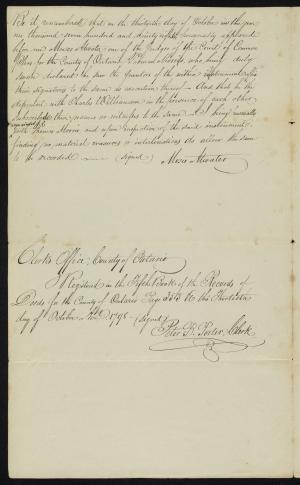 Be it remembered that on the thirtieth day of October in the year
one thousand seven hundred and ninety eight personally appeared
before me Moses Atwater one of the Judges of the Court of Common
Pleas for the County of Ontario Thomas Morris who being duly
sworn declared he saw the Grantors of the within instrument affix
their signatures to the same in execution thereof — And that he the
deponent, with Charles Williamson in the presence of each other
subscribed their names as witnesses to the same — I being personally
acquainted with Thomas Morris and upon inspection of the said instrument
finding no material erasures or interlineations do allow the same
to be recorded (signed) Moses Atwater
Clerks Office, County of Ontario
Registered in the Fifth Book of the Records of
Deeds for the County of Ontario Page &c this Thirtieth
day of October 1798 – (signed)
Peter B. Porter, Clerk